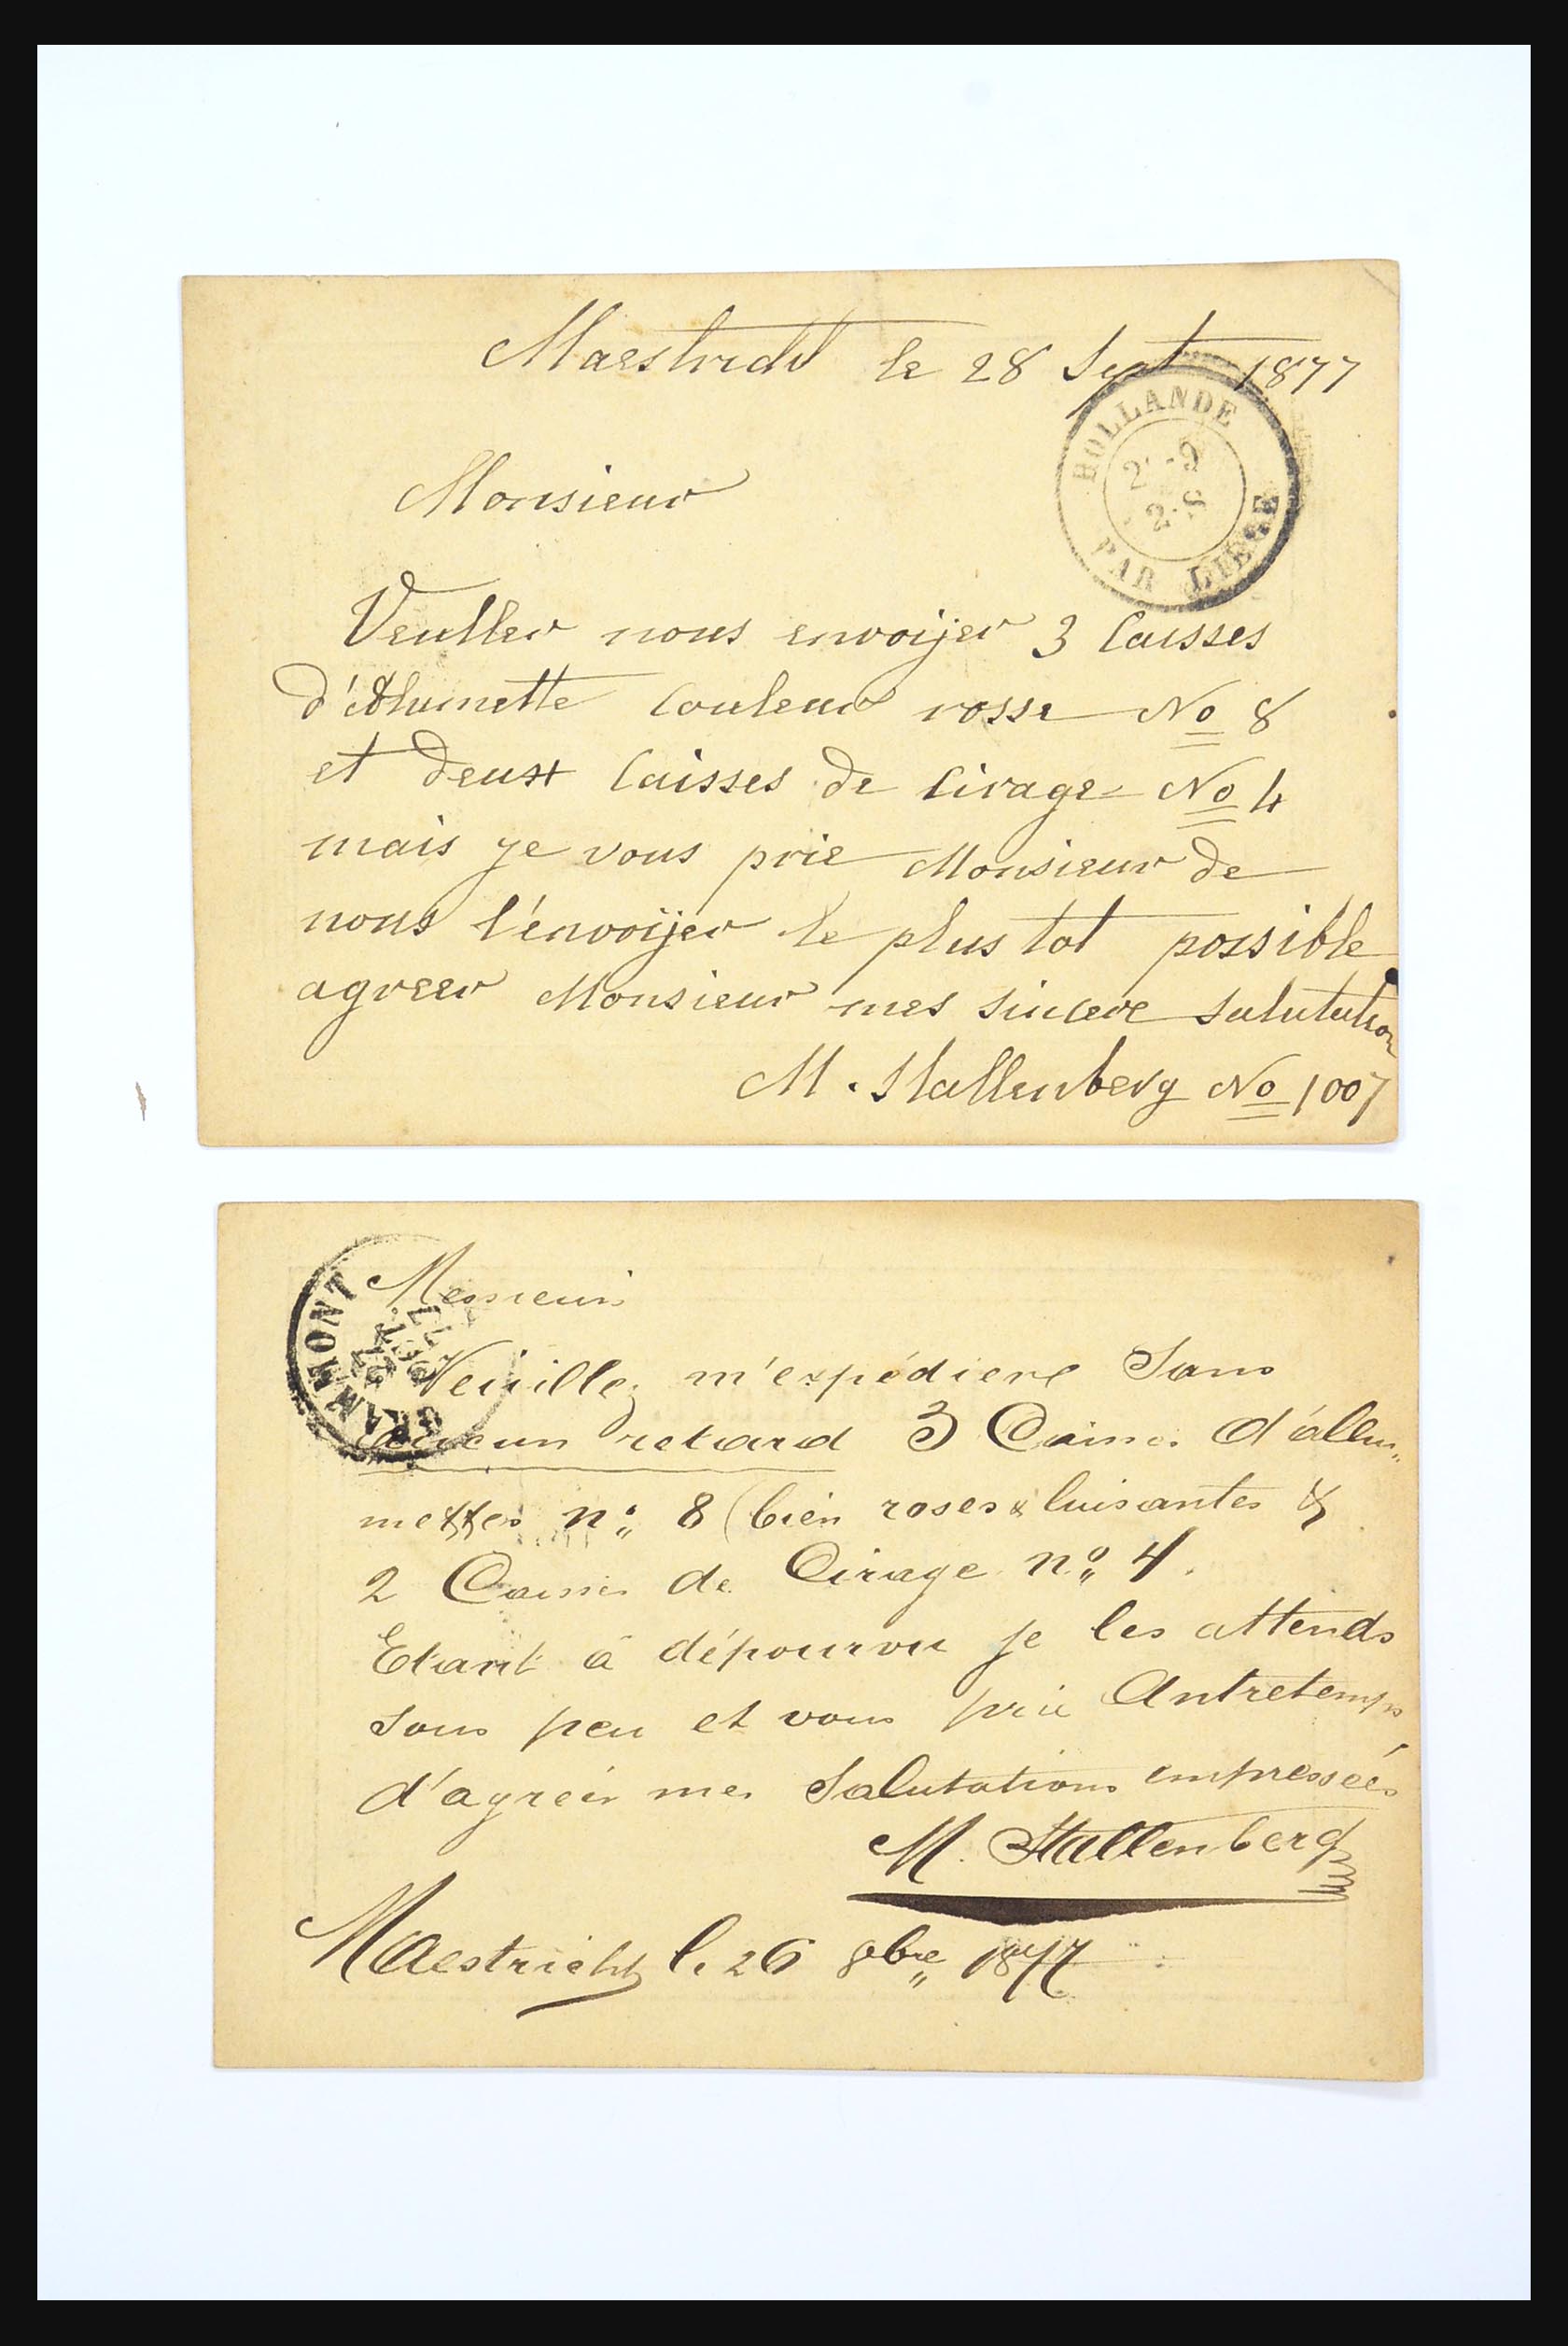 Maestricht le 28 Sept 1877
HOLLANDE
PAR LIEGE
Monsieur
Veuller nous envoijer 3 Caisses
d'Alumette Couleur rosse No 8
et deux Caisses de Cirage No 4
mais je vous prie Monsieur de
nous l'énvoijer le plus tot possible
agreer Monsieur mes sincere salutation
M. Stallenberg No 1007
GRAMMONT
OCT.
Messieurs
Veuillez m'expédiere Sans
aucun retard 3 Caisses d'allu„
mettes n° 8 (bien roses & luisantes &
2 Caisses de Cirage n° 4.
Etant à dépourvu je les attends
sous peu et vous prie Antretemps
d'agréér mes Salutations empressées
M. Stallenberg
Maestricht le 26 8bre 1877